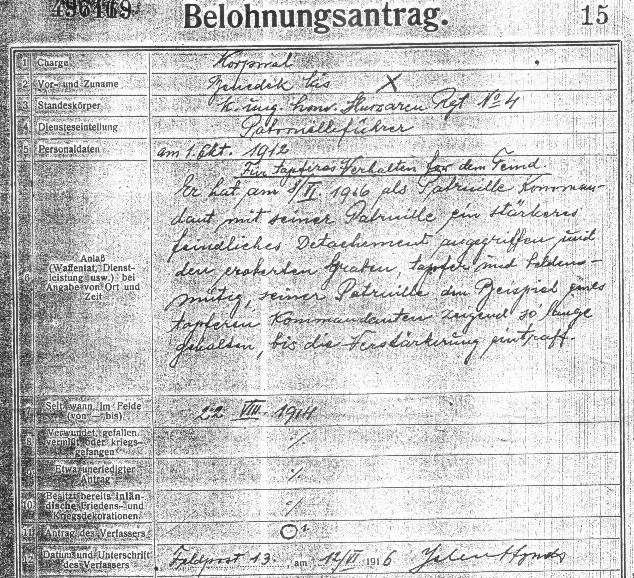 496169
Belohnungsantrag.
15
1 Charge Korporal
2 Vor- und Zuname Benedek
3 Standeskörper K. ung. honv. Huszaren Rgt No 4
4 Diensteseinteilung Patrouilleführer
5 Personaldaten am 1. Okt. 1912
Für tapferes Verhalten vor dem Feind.
6 Anlaß
(Waffentat, Dienst-
leistung usw.) bei
Angabe von Ort und
Zeit
Er hat am 1916, als Patruille Komman-
dant mit seiner Patruille ein stärkeres
feindliches Detachement angegriffen und
den eroberten Graben, tapfer und heldens-
mütig, seiner Patruille den Beispiel eines
tapferen Kommandanten zeigend so lange
gehalten, bis die Verstärkung eintraff.
7 Seit wann im Felde
(von — bis) 22 VIII. 1914
8 Verwundet, gefallen,
vermißt oder kriegs-
gefangen ·/.
9 Etwa unerledigter
Antrag ·/.
10 Besitzt bereits inlän-
dische Friedens- und
Kriegsdekorationen ·/.
11 Antrag des Verfassers
12 Datum und Unterschrift
des Verfassers Feldpost 13. am 12/VI 1916